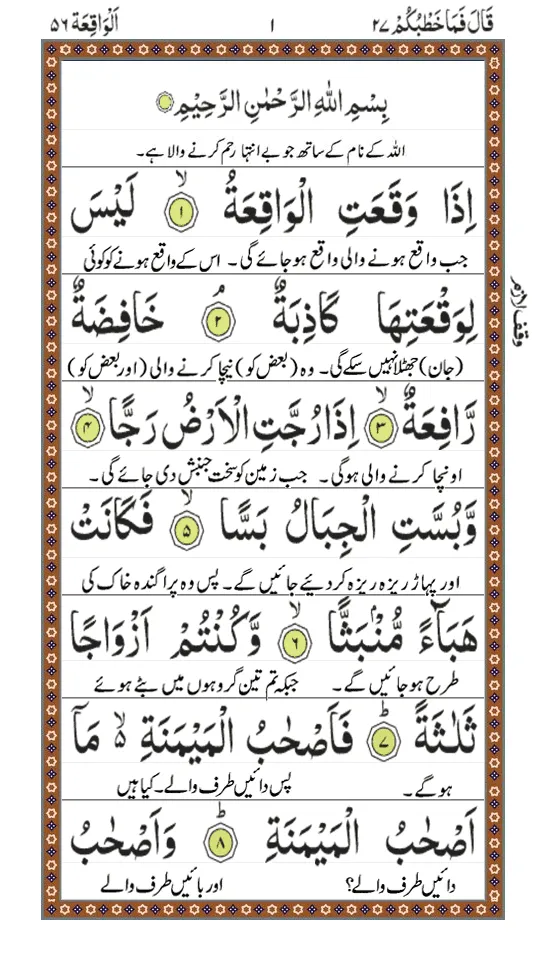 قَالَ فَمَا خَطْبُكُمْ ۲۷ ۱ اَلْوَاقِعَة ۵۶
بِسْمِ اللّٰهِ الرَّحْمٰنِ الرَّحِيْمِ
اللہ کے نام کے ساتھ جو بے انتہا رحم کرنے والا ہے۔
اِذَا وَقَعَتِ الْوَاقِعَةُ ۙ۱ لَيْسَ
جب واقع ہونے والی واقع ہو جائے گی۔ اس کے واقع ہونے کو کوئی
لِوَقْعَتِهَا كَاذِبَةٌ ۘ۲ خَافِضَةٌ
وقف لازم
(جان) جھٹلا نہیں سکے گی۔ وہ (بعض کو) نیچا کرنے والی (اور بعض کو)
رَّافِعَةٌ ۙ۳ اِذَا رُجَّتِ الْاَرْضُ رَجًّا ۙ۴
اونچا کرنے والی ہوگی۔ جب زمین کو سخت جنبش دی جائے گی۔
وَّبُسَّتِ الْجِبَالُ بَسًّا ۙ۵ فَكَانَتْ
اور پہاڑ ریزہ ریزہ کر دیئے جائیں گے۔ پس وہ پراگندہ خاک کی
هَبَآءً مُّنْۢبَثًّا ۙ۶ وَّكُنْتُمْ اَزْوَاجًا
طرح ہو جائیں گے۔ جبکہ تم تین گروہوں میں بٹے ہوئے
ثَلٰثَةً ؕ۷ فَاَصْحٰبُ الْمَيْمَنَةِ ۙ۵ مَاۤ
ہوگے۔ پس دائیں طرف والے۔ کیا ہیں
اَصْحٰبُ الْمَيْمَنَةِ ؕ۸ وَاَصْحٰبُ
دائیں طرف والے؟ اور بائیں طرف والے